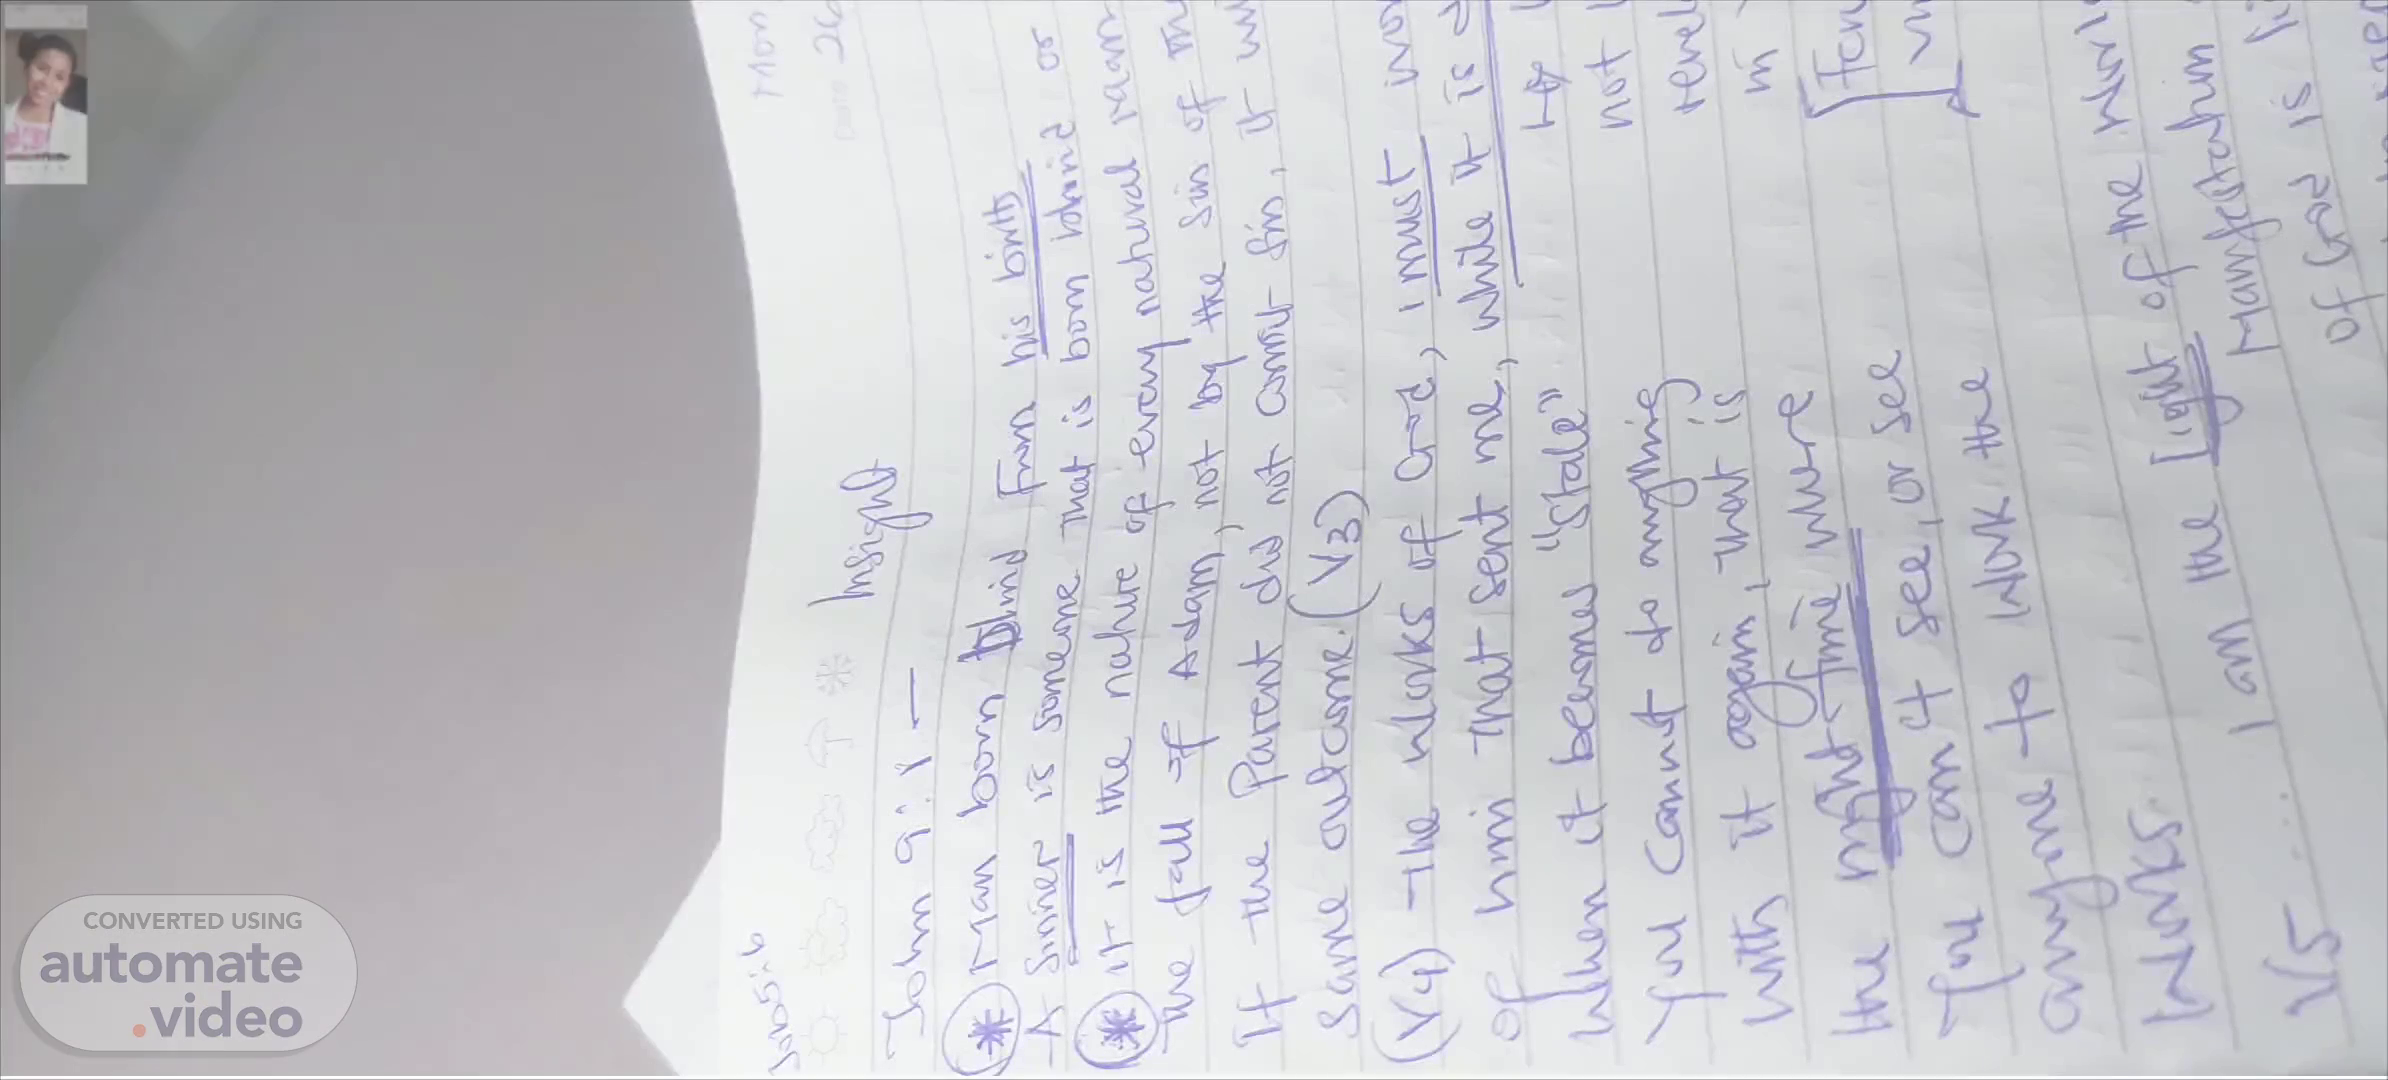 Mon
Date 26
Insight
John 9:1 —
Man born Blind From his birth
A Sinner is someone that is born blind or
It is the nature of every natural man
The fall of Adam, not by the sin of
If the Parent did not commit sin, it
Same outcome. (V3)
(V4) The works of God, I must
of him that sent me, while it is
when it becomes "Stale"
You cannot do anything
not
with it again, that is
the night time where
in
You can't see, or see
anyone to work the
works.
V5 .... I am the Light of the
Manifestation
of God is
CONVERTED USING
automate
.video